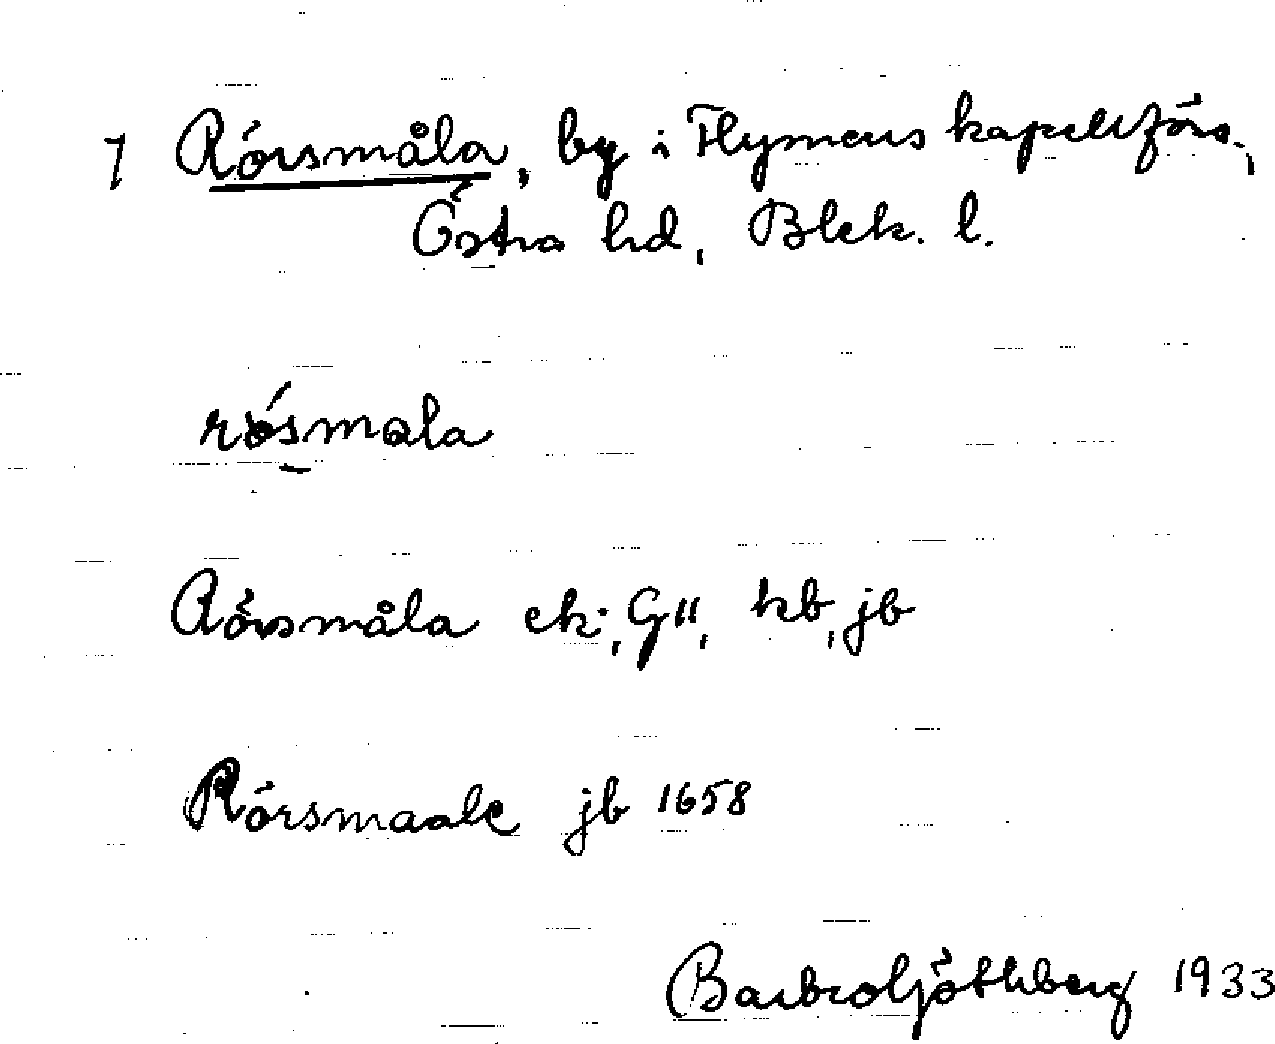 7 Rörsmåla, by i Flymens kapellförs.,
Östra hd, Blek. l.
Rörsmåla ek, GII, kb, jb
Rörsmaale jb 1658
Barbro 1933